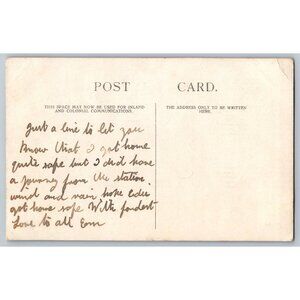 POST CARD.
THIS SPACE MAY NOW BE USED FOR INLAND
AND COLONIAL COMMUNICATIONS.
THE ADDRESS ONLY TO BE WRITTEN
HERE.
Just a line to let you
know that I got home
quite safe but I did have
a journey from the station
wind and rain, hope Edie
got home safe With fondest
Love to all Em